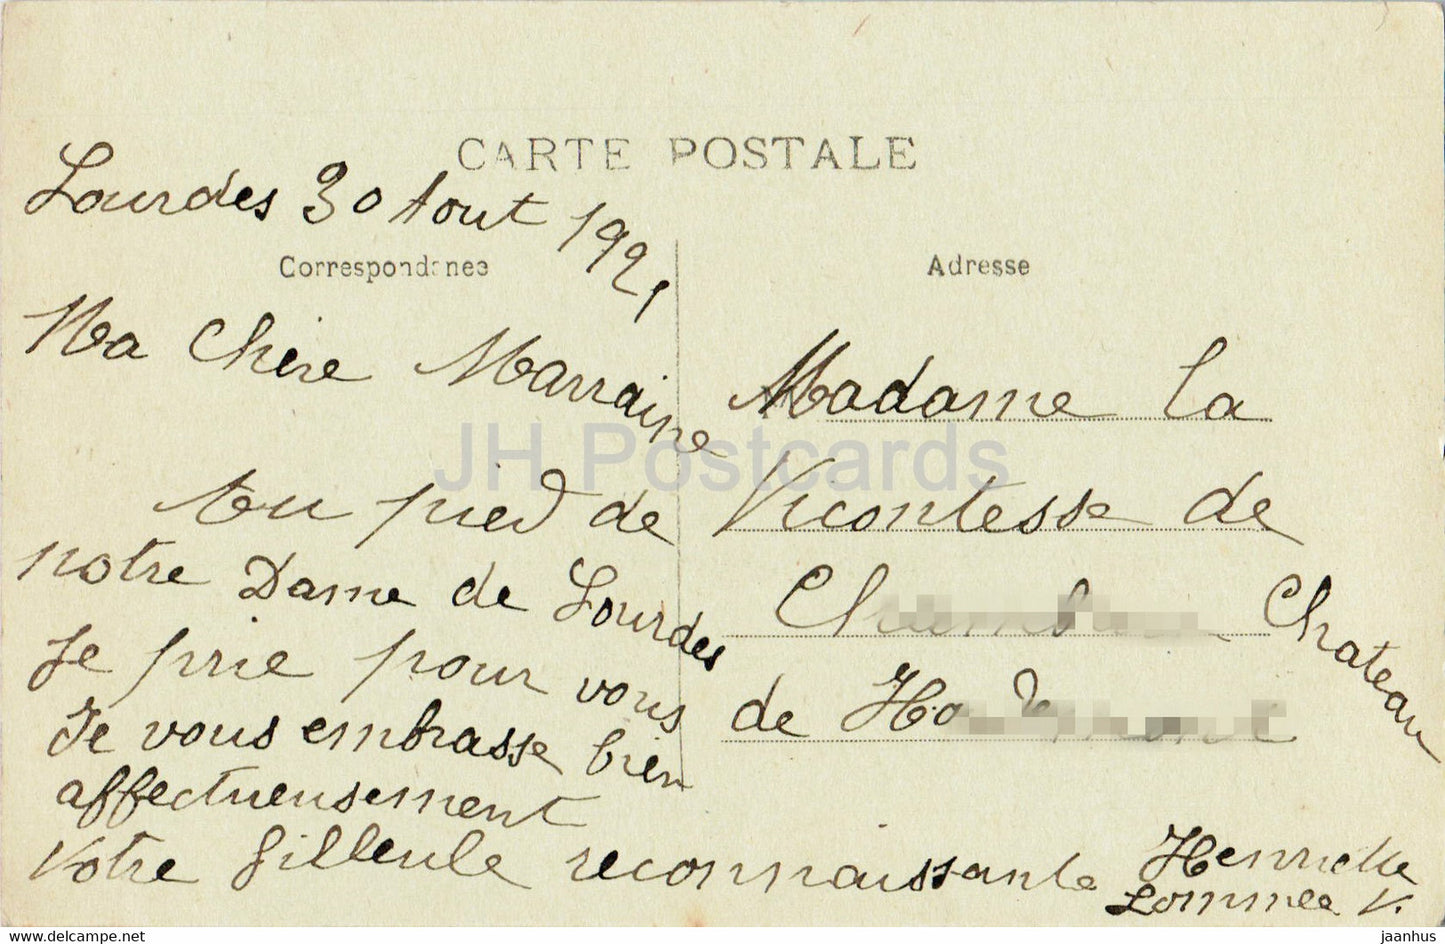 CARTE POSTALE
Lourdes 30 Aout 1921
Correspondance
Adresse
Ma Chère Marraine
Au pied de
notre Dame de Lourdes
Je prie pour vous
Je vous embrasse bien
affectueusement
Votre filleule reconnaissante
Henriette
V.
Madame la
Vicontesse de
Chateau
de
JH Postcards
hippostcard.com/store/jh-postcards
jaanhus